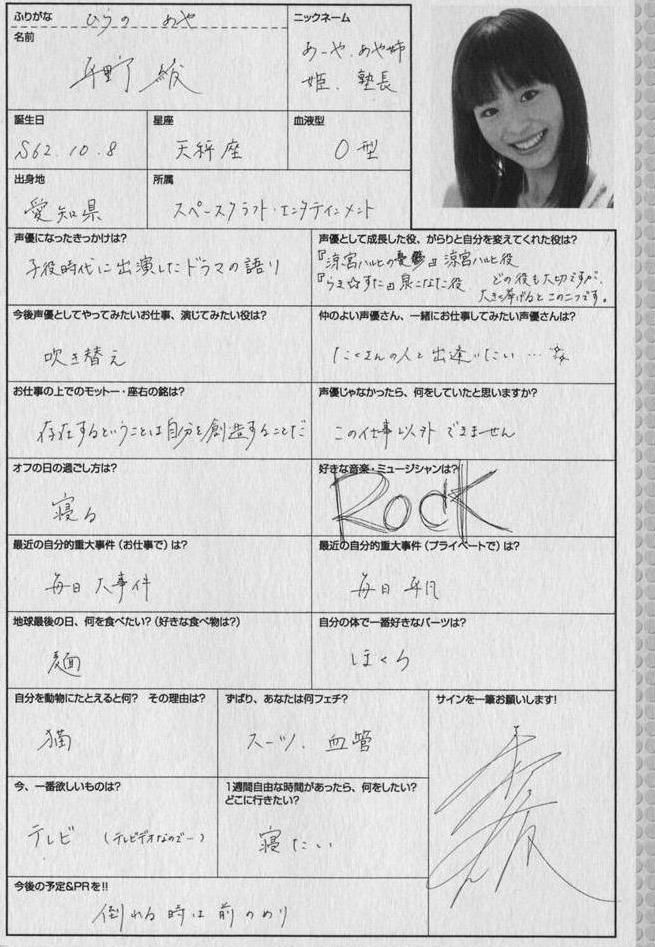 ふりがな
ひらの あや
名前
平野 綾
ニックネーム
あーや、あや姉
姫、塾長
誕生日
S62.10.8
星座
天秤座
血液型
O型
出身地
愛知県
所属
スペースクラフト・エンタテインメント
声優になったきっかけは?
子役時代に出演したドラマの語り
声優として成長した役、がらりと自分を変えてくれた役は?
『涼宮ハルヒの憂鬱』涼宮ハルヒ役
『らき☆すた』泉こなた役 どの役も大切ですが、
大きく挙げるとこの二つです。
今後声優としてやってみたいお仕事、演じてみたい役は?
吹き替え
仲のよい声優さん、一緒にお仕事してみたい声優さんは?
たくさんの人と出逢いたい…
お仕事の上でのモットー・座右の銘は?
存在するということは自分を創造することだ
声優じゃなかったら、何をしていたと思いますか?
この仕事以外できません
オフの日の過ごし方は?
寝る
好きな音楽・ミュージシャンは?
ROCK
最近の自分的重大事件(お仕事で)は?
毎日大事件
最近の自分的重大事件(プライベートで)は?
毎日平凡
地球最後の日、何を食べたい?(好きな食べ物は?)
麺
自分の体で一番好きなパーツは?
ほくろ
自分を動物にたとえると何? その理由は?
猫
ずばり、あなたは何フェチ?
スーツ、血管
サインを一筆お願いします!
今、一番欲しいものは?
テレビ (テレビデオなので…)
1週間自由な時間があったら、何をしたい?
どこに行きたい?
寝たい
今後の予定&PRを!!
倒れる時は前のめり